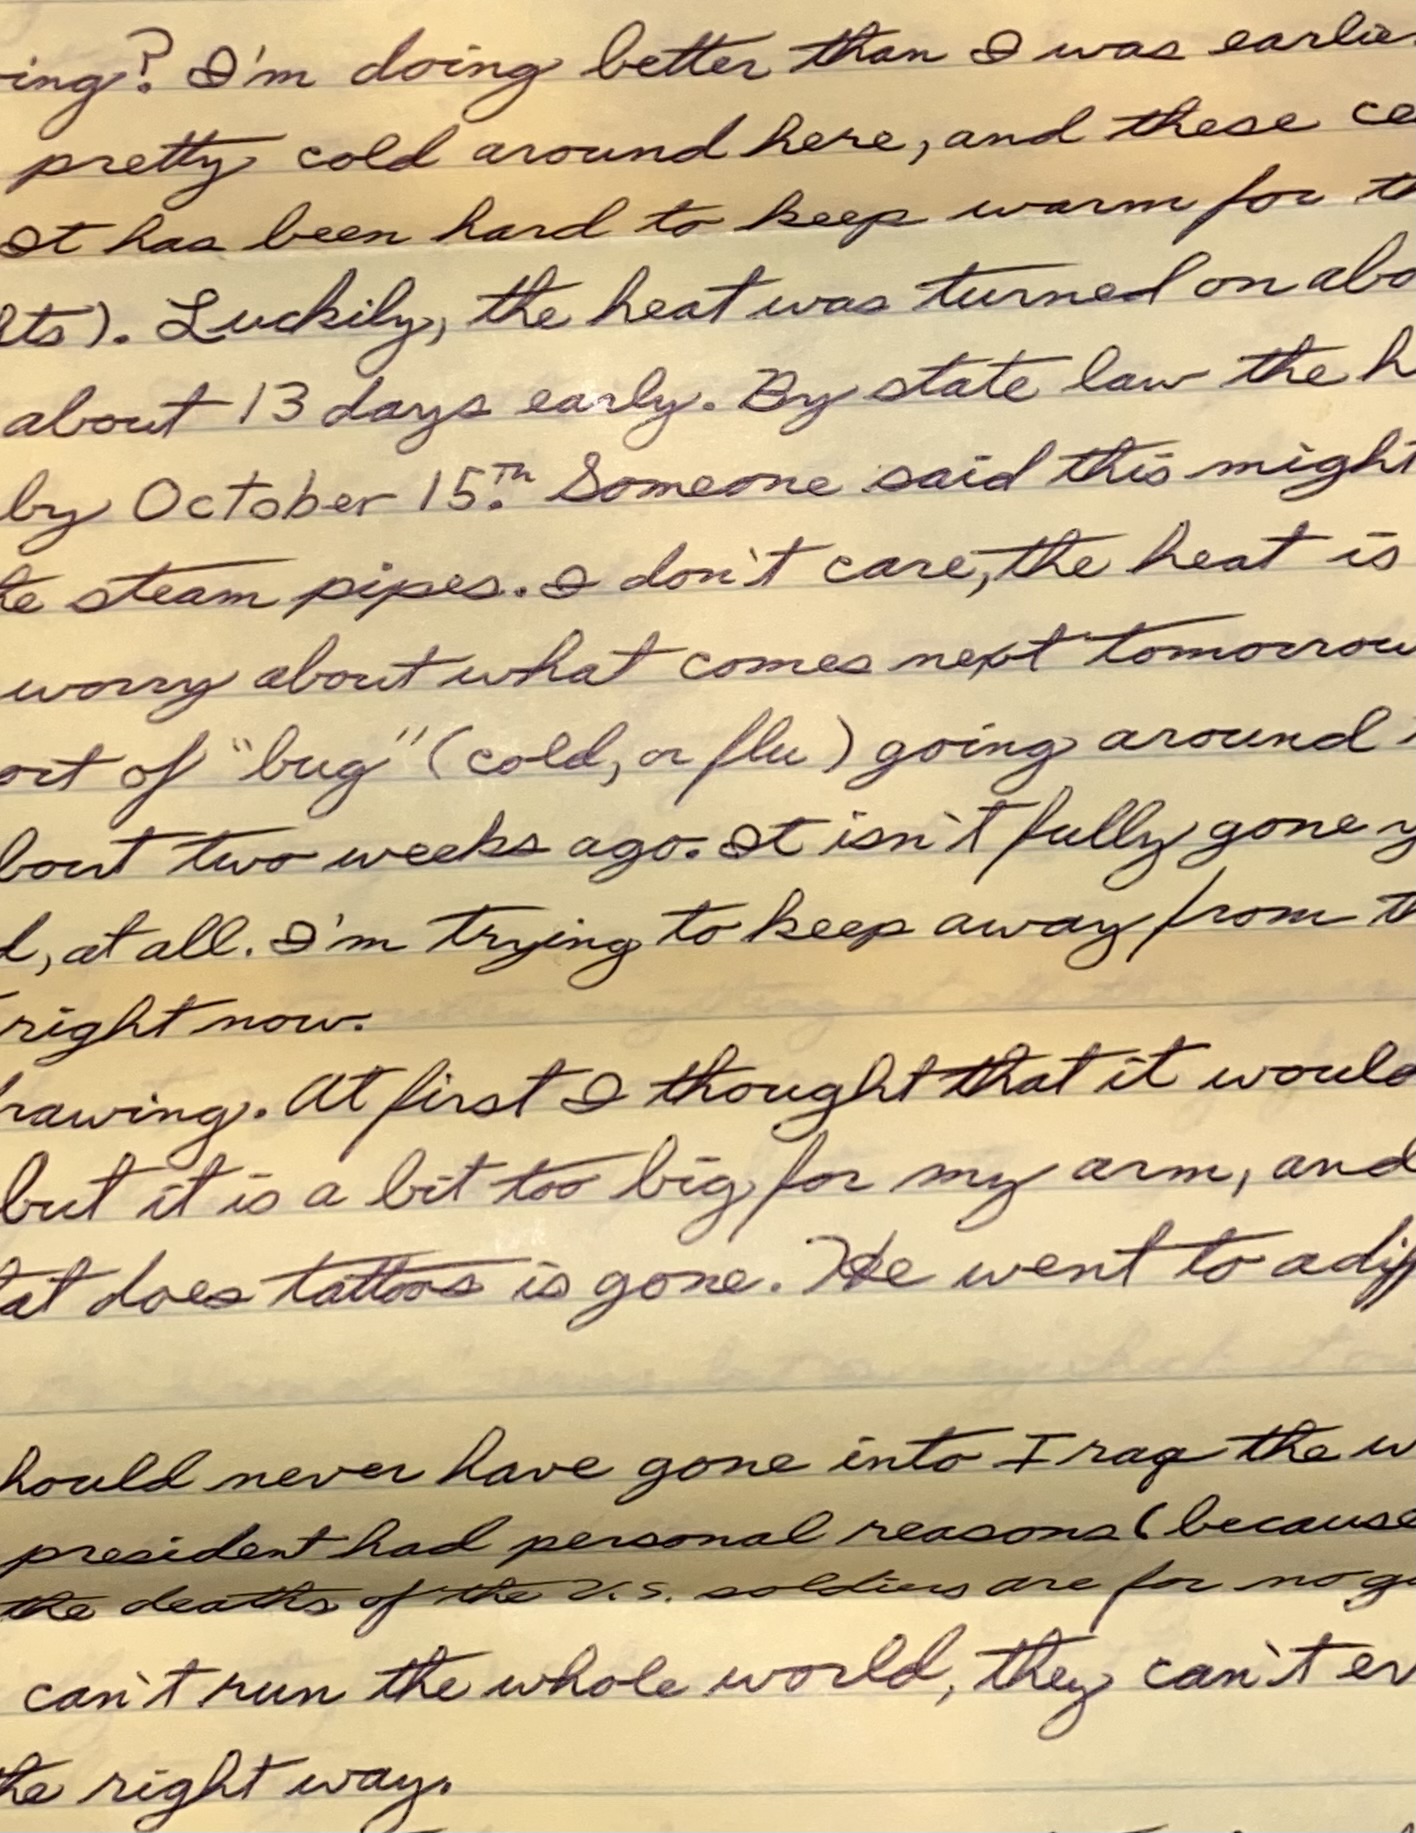 ing? I'm doing better than I was earlie
pretty cold around here, and these ce
It has been hard to keep warm for th
lts). Luckily, the heat was turned on abo
about 13 days early. By state law the h
by October 15.th Someone said this might
te steam pipes. I don't care, the heat is
worry about what comes next tomorrow
ort of "bug" (cold, or flu) going around
bout two weeks ago. It isn't fully gone y
d, at all. I'm trying to keep away from th
right now.
rawing. At first I thought that it would
but it is a bit too big for my arm, and
at does tattoos is gone. He went to a diff
hould never have gone into Iraq the w
president had personal reasons (because
the deaths of the U.S. soldiers are for no go
can't run the whole world, they can't ev
he right way.